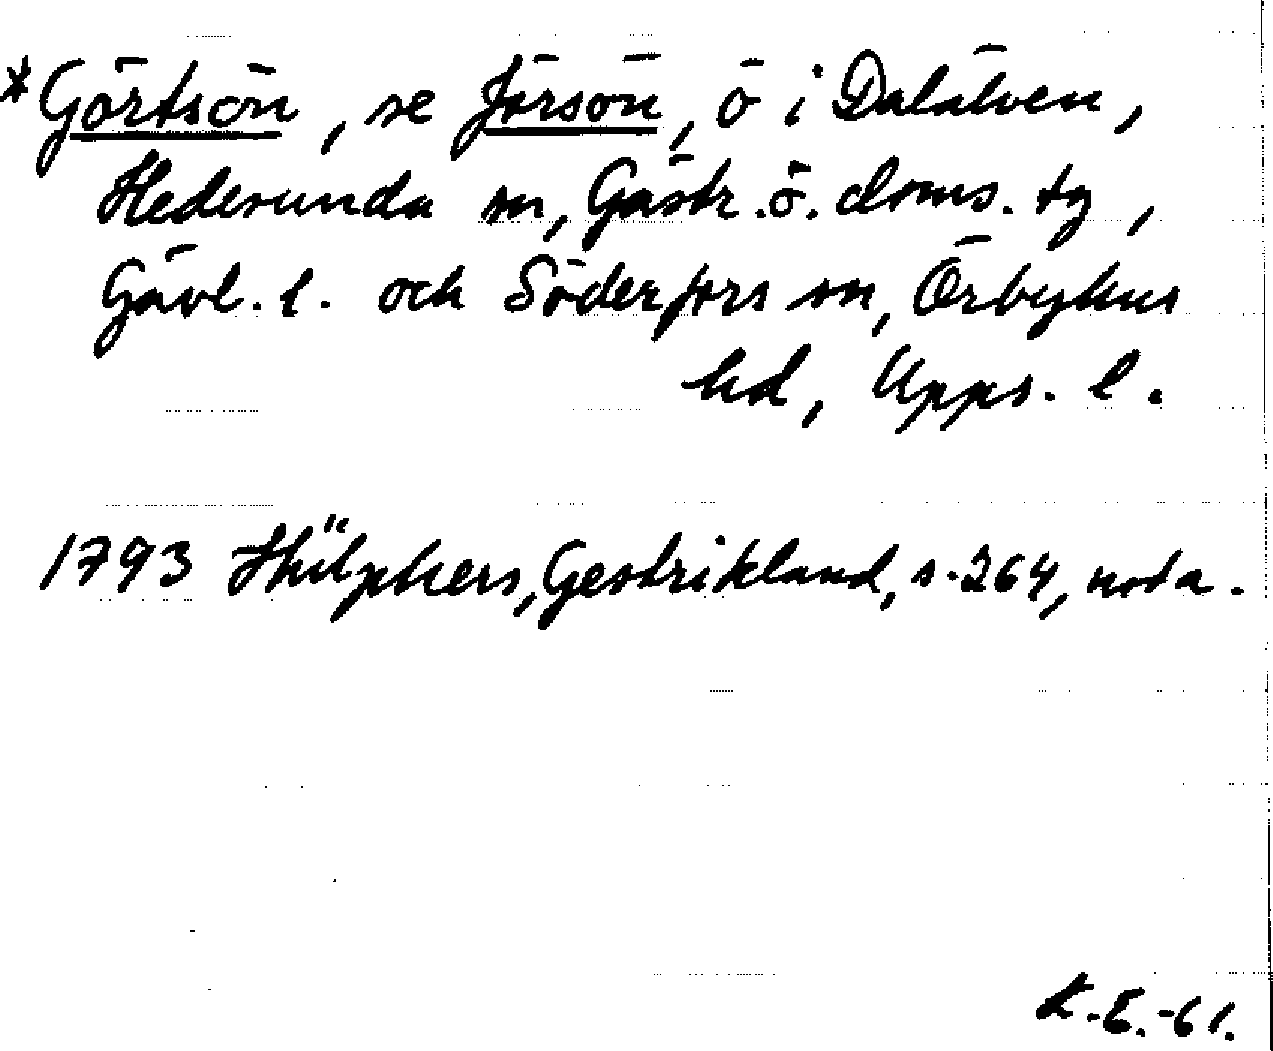 *Görtsön, se Jörsön, ö i Dalälven,
Hedesunda sn, Gästr. ö. doms. tg,
Gävl. l. och Söderfors sn, Örbyhus
hd, Upps. l.
1793 Hülphers, Gestrikland, s. 264, nota.
K.-E.-61.